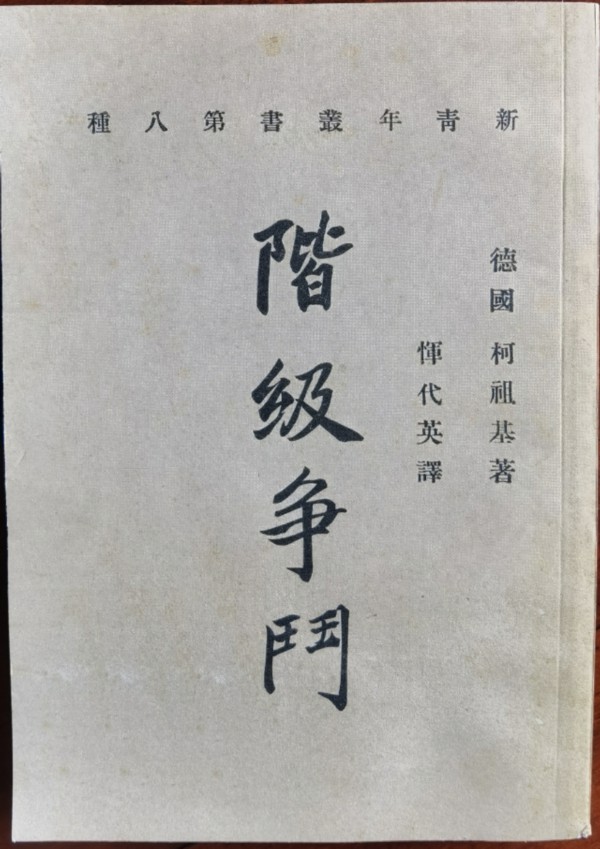 新青年叢書第八種
德國 柯祖基著
惲代英譯
階級争鬥